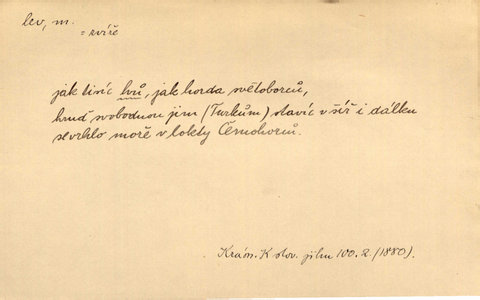 lev, m.
= zvíře
jak tisíc lvů, jak horda světoborců,
hruď svobodnou jim (Turkům) stavíc v šíř i dálku
se vrhlo moře v lokty Černohorců.
Krásn. K slov. jihu 100. 2. (1880).